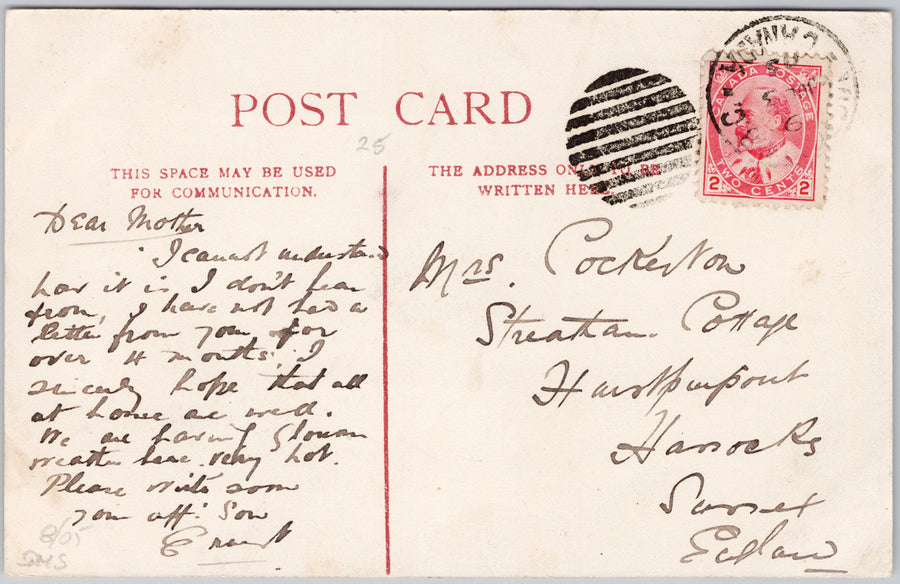 POST CARD
25
THIS SPACE MAY BE USED
FOR COMMUNICATION.
THE ADDRESS ONLY TO BE
WRITTEN HERE
CANADA POSTAGE
2 TWO CENTS 2
Dear Mother
I cannot understand
how it is I don't hear
from, I have not had a
letter from you for
over 4 months. I
sincerely hope that all
at home are well.
We are having glorious
weather here very hot.
Please write soon
your aff. Son
Ernest
8/05
DMS
Mrs. Cockerton
Streatham Cottage
Hurstpierpoint
Hassocks
Sussex
England